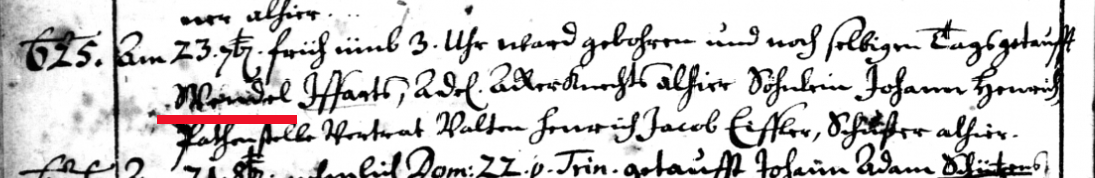 ner alhier.
625. Am 23. 7b. früh umb 3. Uhr ward gebohren und noch selbigen Tags getaufft
Wendel Iffarts, Adel. Ackerknechts alhier Söhnlein Johann Henrich
Pathenstelle Vertrat Valten Henrich Jacob Eiffler, Schuster alhier.
Dom: 22. p. Trin. getaufft Johann Adam Schützens